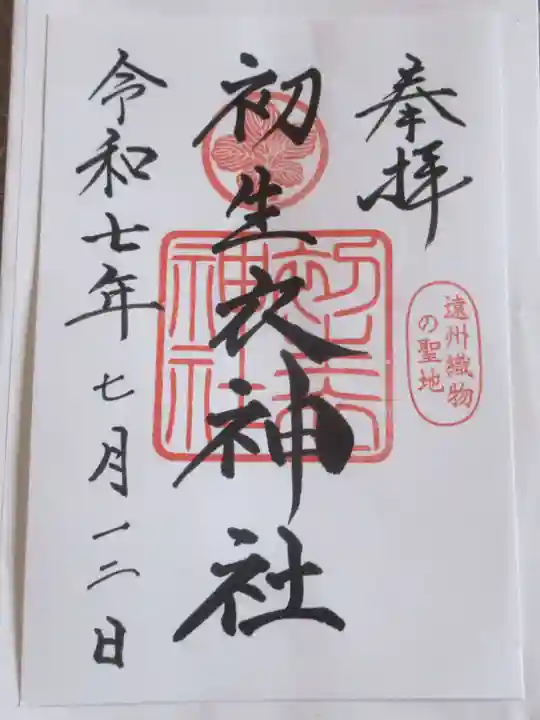 奉拝
遠州織物
の聖地
初生衣神社
初生衣
神社
令和七年七月十二日